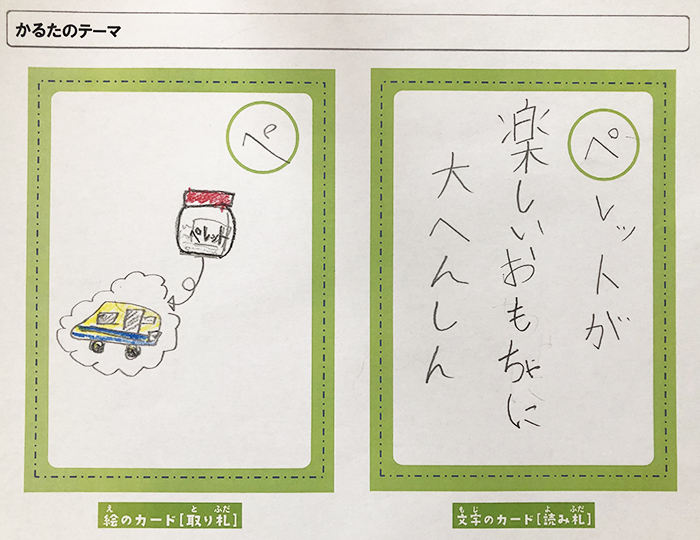 かるたのテーマ
ペ
ペレット
絵のカード[取り札]
え と ふだ
ペ
レットが
楽しいおもちゃに
大へんしん
文字のカード[読み札]
もじ よ ふだ